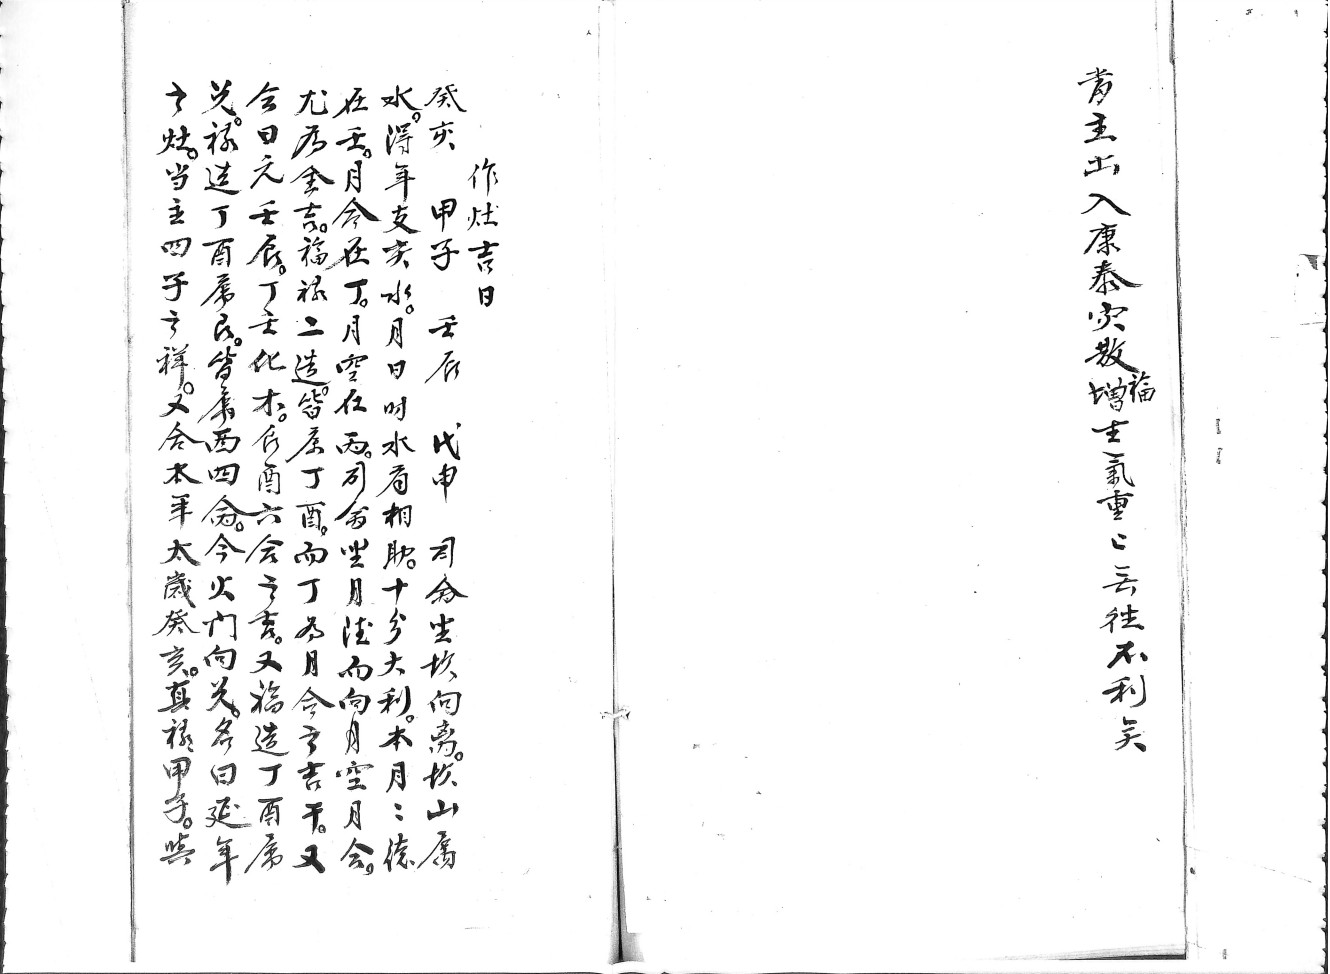 當主出入康泰灾散福增生氣重亡云往不利矣
作灶吉日
癸亥　甲子　壬辰　戊申　司命坐坎向离。坎山属
水。得年支亥水。月日时水局相助。十分大利。本月二德
在壬。月合在丁。月空在丙。司命坐月德而向月空月合。
尤为全吉。福禄二造。皆属丁酉。而丁为月合之吉干。又
合日元壬辰。丁壬化木。辰酉六合之吉。又福造丁酉属
兑。禄造丁酉属艮。皆属西四命。今火门向兑。名曰延年
之灶。当主四子之祥。又合本年太歲癸亥。真禄甲子。與